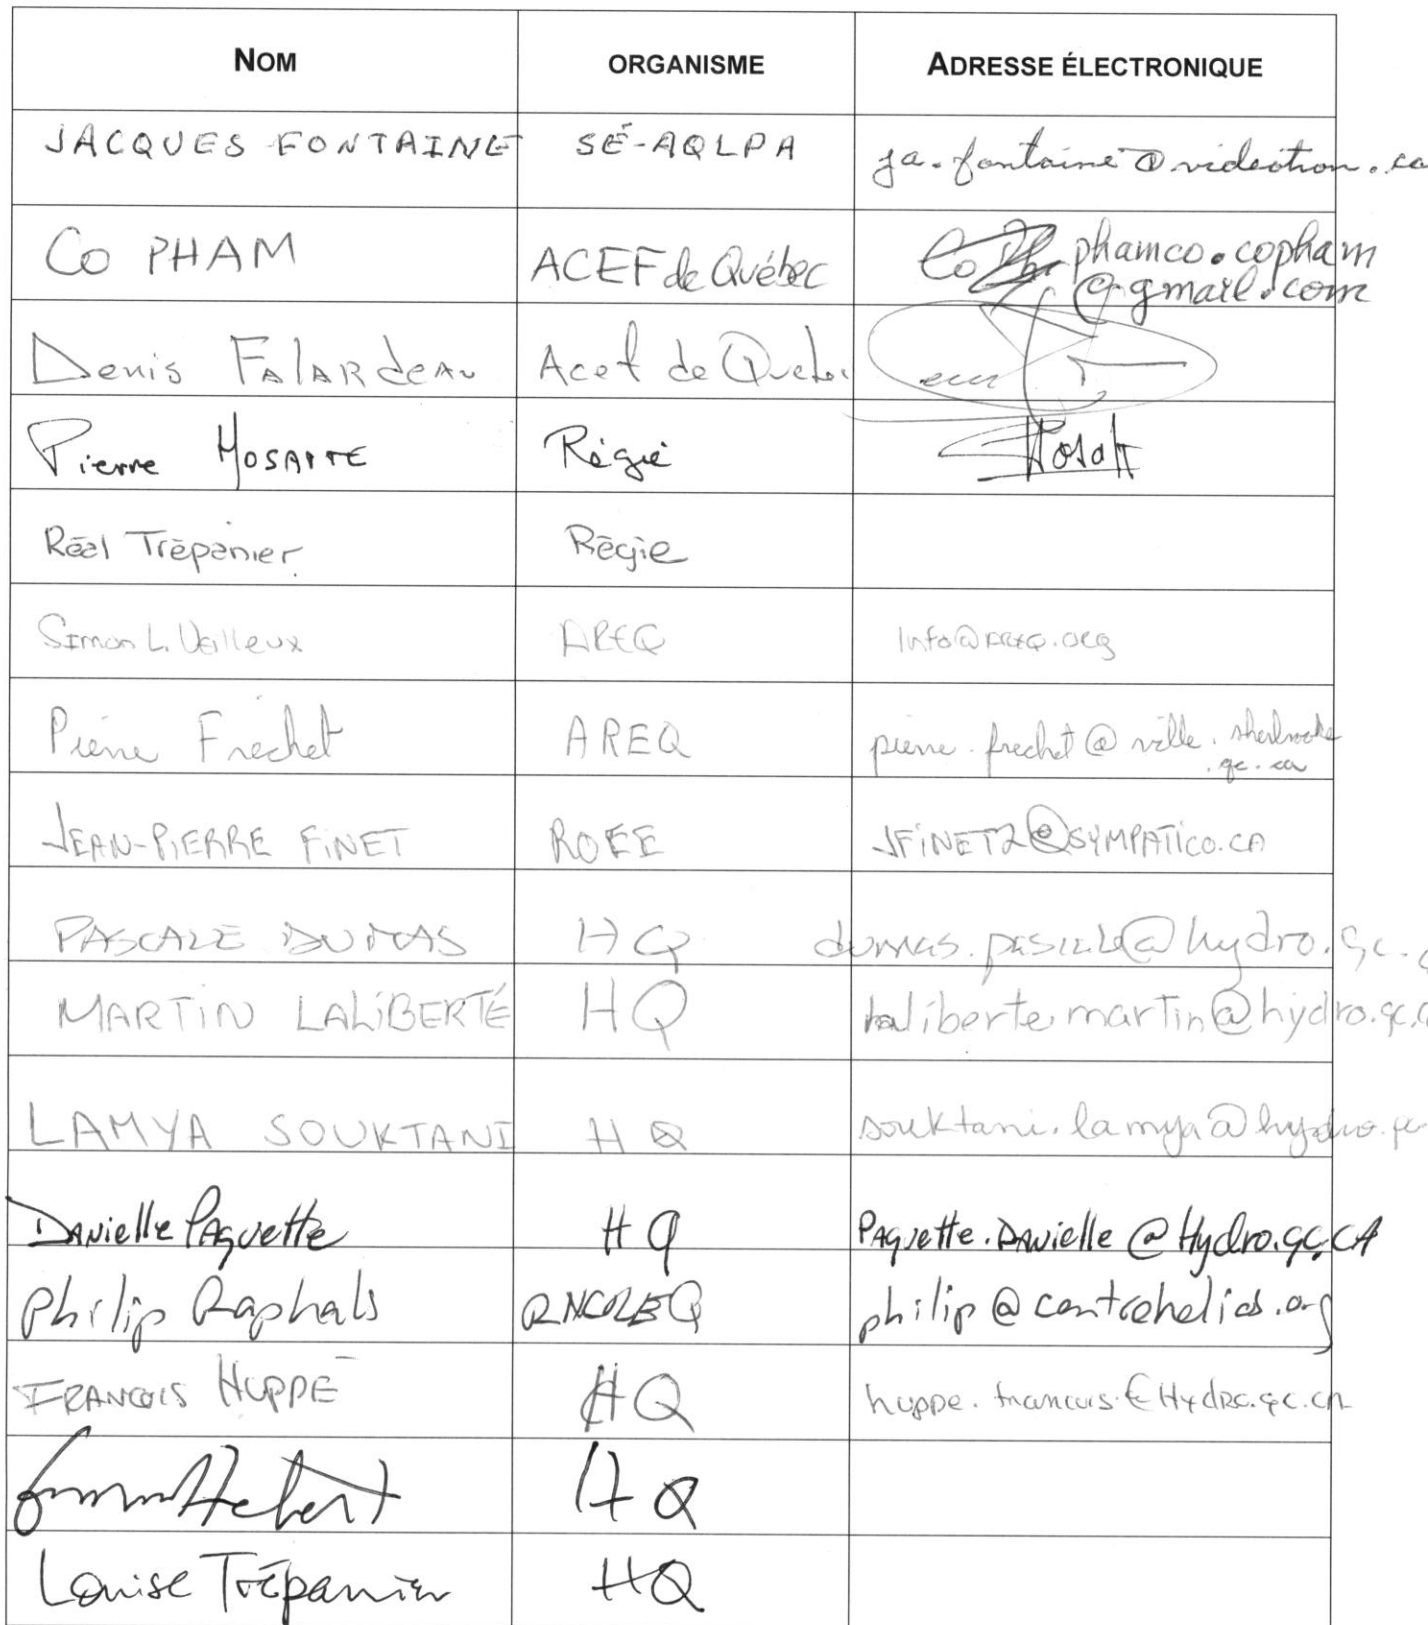 NOM ORGANISME ADRESSE ÉLECTRONIQUE
JACQUES FONTAINE SÉ-AQLPA ja.fontaine@videotron.ca
CO PHAM ACEF de Québec phamco.copham
@gmail.com
Denis FALARDEAU Acef de
Pierre Régie
Réal Trépanier Régie
Simon L. Veilleux AREQ info@AREQ.org
Pierre Frechet AREQ pierre.frechet@ville.sherbrooke
.qc.ca
JEAN-PIERRE FINET ROEE JFINET2@SYMPATICO.CA
PASCALE DUMAS HQ dumas.pascale@hydro.qc.c
MARTIN LALIBERTÉ HQ laliberte.martin@hydro.qc.c
LAMYA SOUKTANI HQ souktani.lamya@hydro.qc
DANIELLE PAQUETTE HQ PAQUETTE.DANIELLE@Hydro.QC.CA
Philip Raphals RNCREQ philip@centrehelios.org
FRANCOIS HUPPÉ HQ huppe.francois@Hydro.qc.ca
Hebert HQ
Louise Trépanier HQ